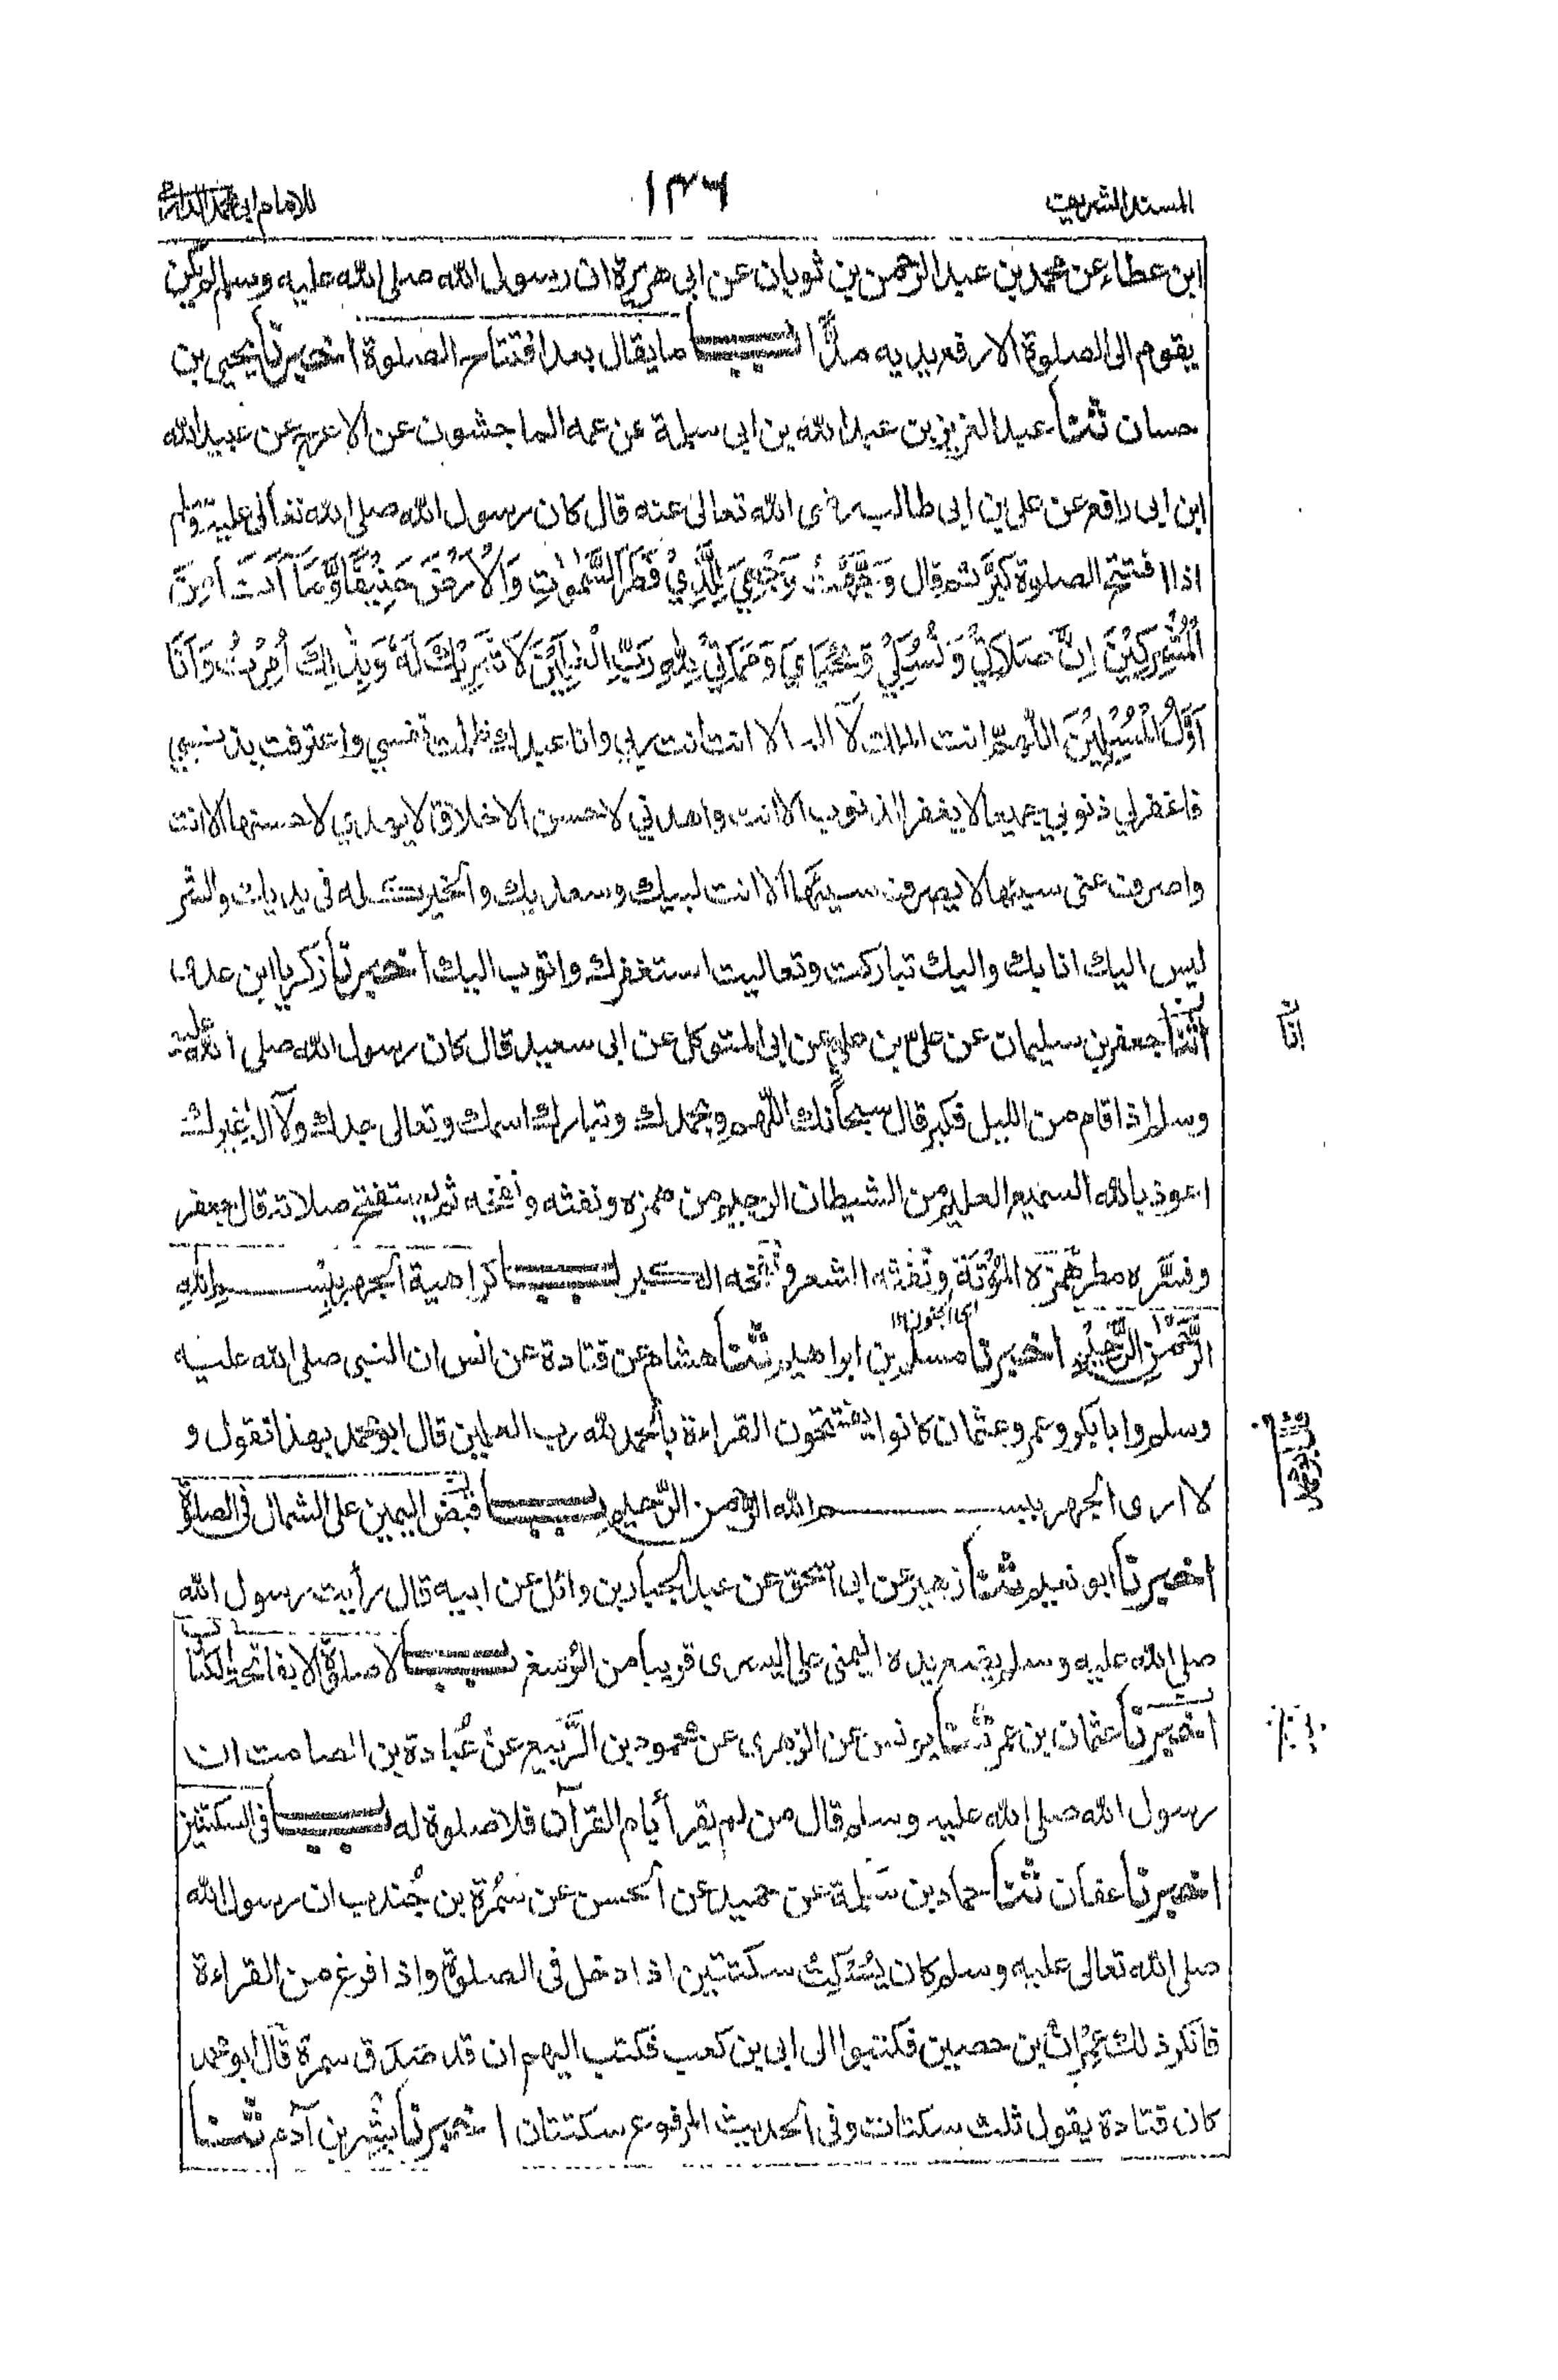 المسند الشريف
١٣٦
للامام ابي محمد الدارمي
ابن عطاء عن محمد بن عبد الرحمن بن ثوبان عن ابى هريرة ان رسول الله صلى الله عليه وسلم لم يكن
يقوم الى الصلوة الا رفع يديه مدًّا باب ما يقال بعد افتتاح الصلوة اخبرنا يحيى بن
حسان ثنا عبد العزيز بن عبد الله بن ابى سلمة عن عمه الماجشون عن الاعرج عن عبيد الله
ابن ابى رافع عن على بن ابى طالب رضى الله تعالى عنه قال كان رسول الله صلى الله تعالى عليه وسلم
اذا افتتح الصلوة كبَّر ثم قال وَجَّهْتُ وَجْهِيَ لِلَّذِيْ فَطَرَ السَّمٰوٰتِ وَالْاَرْضَ حَنِيْفًا وَّمَا اَنَا مِنَ
الْمُشْرِكِيْنَ اِنَّ صَلَاتِيْ وَنُسُكِيْ وَمَحْيَايَ وَمَمَاتِيْ لِلّٰهِ رَبِّ الْعٰلَمِيْنَ لَا شَرِيْكَ لَهٗ وَبِذٰلِكَ اُمِرْتُ وَاَنَا
اَوَّلُ الْمُسْلِمِيْنَ اللّٰهم انت الملك لآ اله الا انت انت ربي وانا عبدك ظلمت نفسي واعترفت بذنبي
فاغفرلي ذنوبي جميعا لا يغفر الذنوب الا انت واهدني لاحسن الاخلاق لا يهدي لاحسنها الا انت
واصرف عنى سيئها لا يصرف سيئها الا انت لبيك وسعديك والخير كله فى يديك والشر
ليس اليك انا بك واليك تباركت وتعاليت استغفرك واتوب اليك اخبرنا زكريا ابن عدى
ثنا جعفر بن سليمان عن على بن على عن ابى المتوكل عن ابى سعيد قال كان رسول الله صلى الله عليه
وسلم اذا قام من الليل فكبر قال سبحانك اللّٰهم وبحمدك وتبارك اسمك وتعالى جدك ولآ اله غيرك
اعوذ بالله السميع العليم من الشيطان الرجيم من همزه ونفثه ونفخه ثم يستفتح صلاته قال جعفر
وفسَّره مطر همزه المُؤْتَة ونفثه الشعر ونفخه الكبر باب كراهية الجهر ببسم الله
اى الجنون ١٢
الرَّحْمٰنِ الرَّحِيْمِ اخبرنا مسلم بن ابراهيم ثنا هشام عن قتادة عن انس ان النبى صلى الله عليه
وسلم وابابكر وعمر وعثمان كانوا يفتتحون القراءة بالحمد لله رب العلمين قال ابو محمد بهذا نقول و
لا ارى الجهر ببسم الله الرحمن الرحيم باب قبض اليمين على الشمال فى الصلوة
اخبرنا ابو نعيم ثنا زهير عن ابى اسحٰق عن عبد الجبار بن وائل عن ابيه قال رأيت رسول الله
صلى الله عليه وسلم يضع يده اليمنى على اليسرى قريبا من الرُّسغ باب لا صلوة الا بفاتحة الكتاب
اخبرنا عثمان بن عمر ثنا يونس عن الزهري عن محمود بن الرَّبيع عن عُبادة بن الصامت ان
رسول الله صلى الله عليه وسلم قال من لم يقرأ بام القرآن فلا صلوة له باب فى السكتتين
اخبرنا عفان ثنا حماد بن سَلمة عن حميد عن الحسن عن سَمُرة بن جُندب ان رسول الله
صلى الله تعالى عليه وسلم كان يَسْكُتُ سكتتين اذا دخل فى الصلوة واذا فرغ من القراءة
فانكر ذلك عِمْرانُ بن حصين فكتبوا الى ابى بن كعب فكتب اليهم ان قد صَدَق سمرة قال ابو محمد
كان قتادة يقول ثلث سكتات وفى الحديث المرفوع سكتتان اخبرنا بِشْر بن آدم ثنا
انا